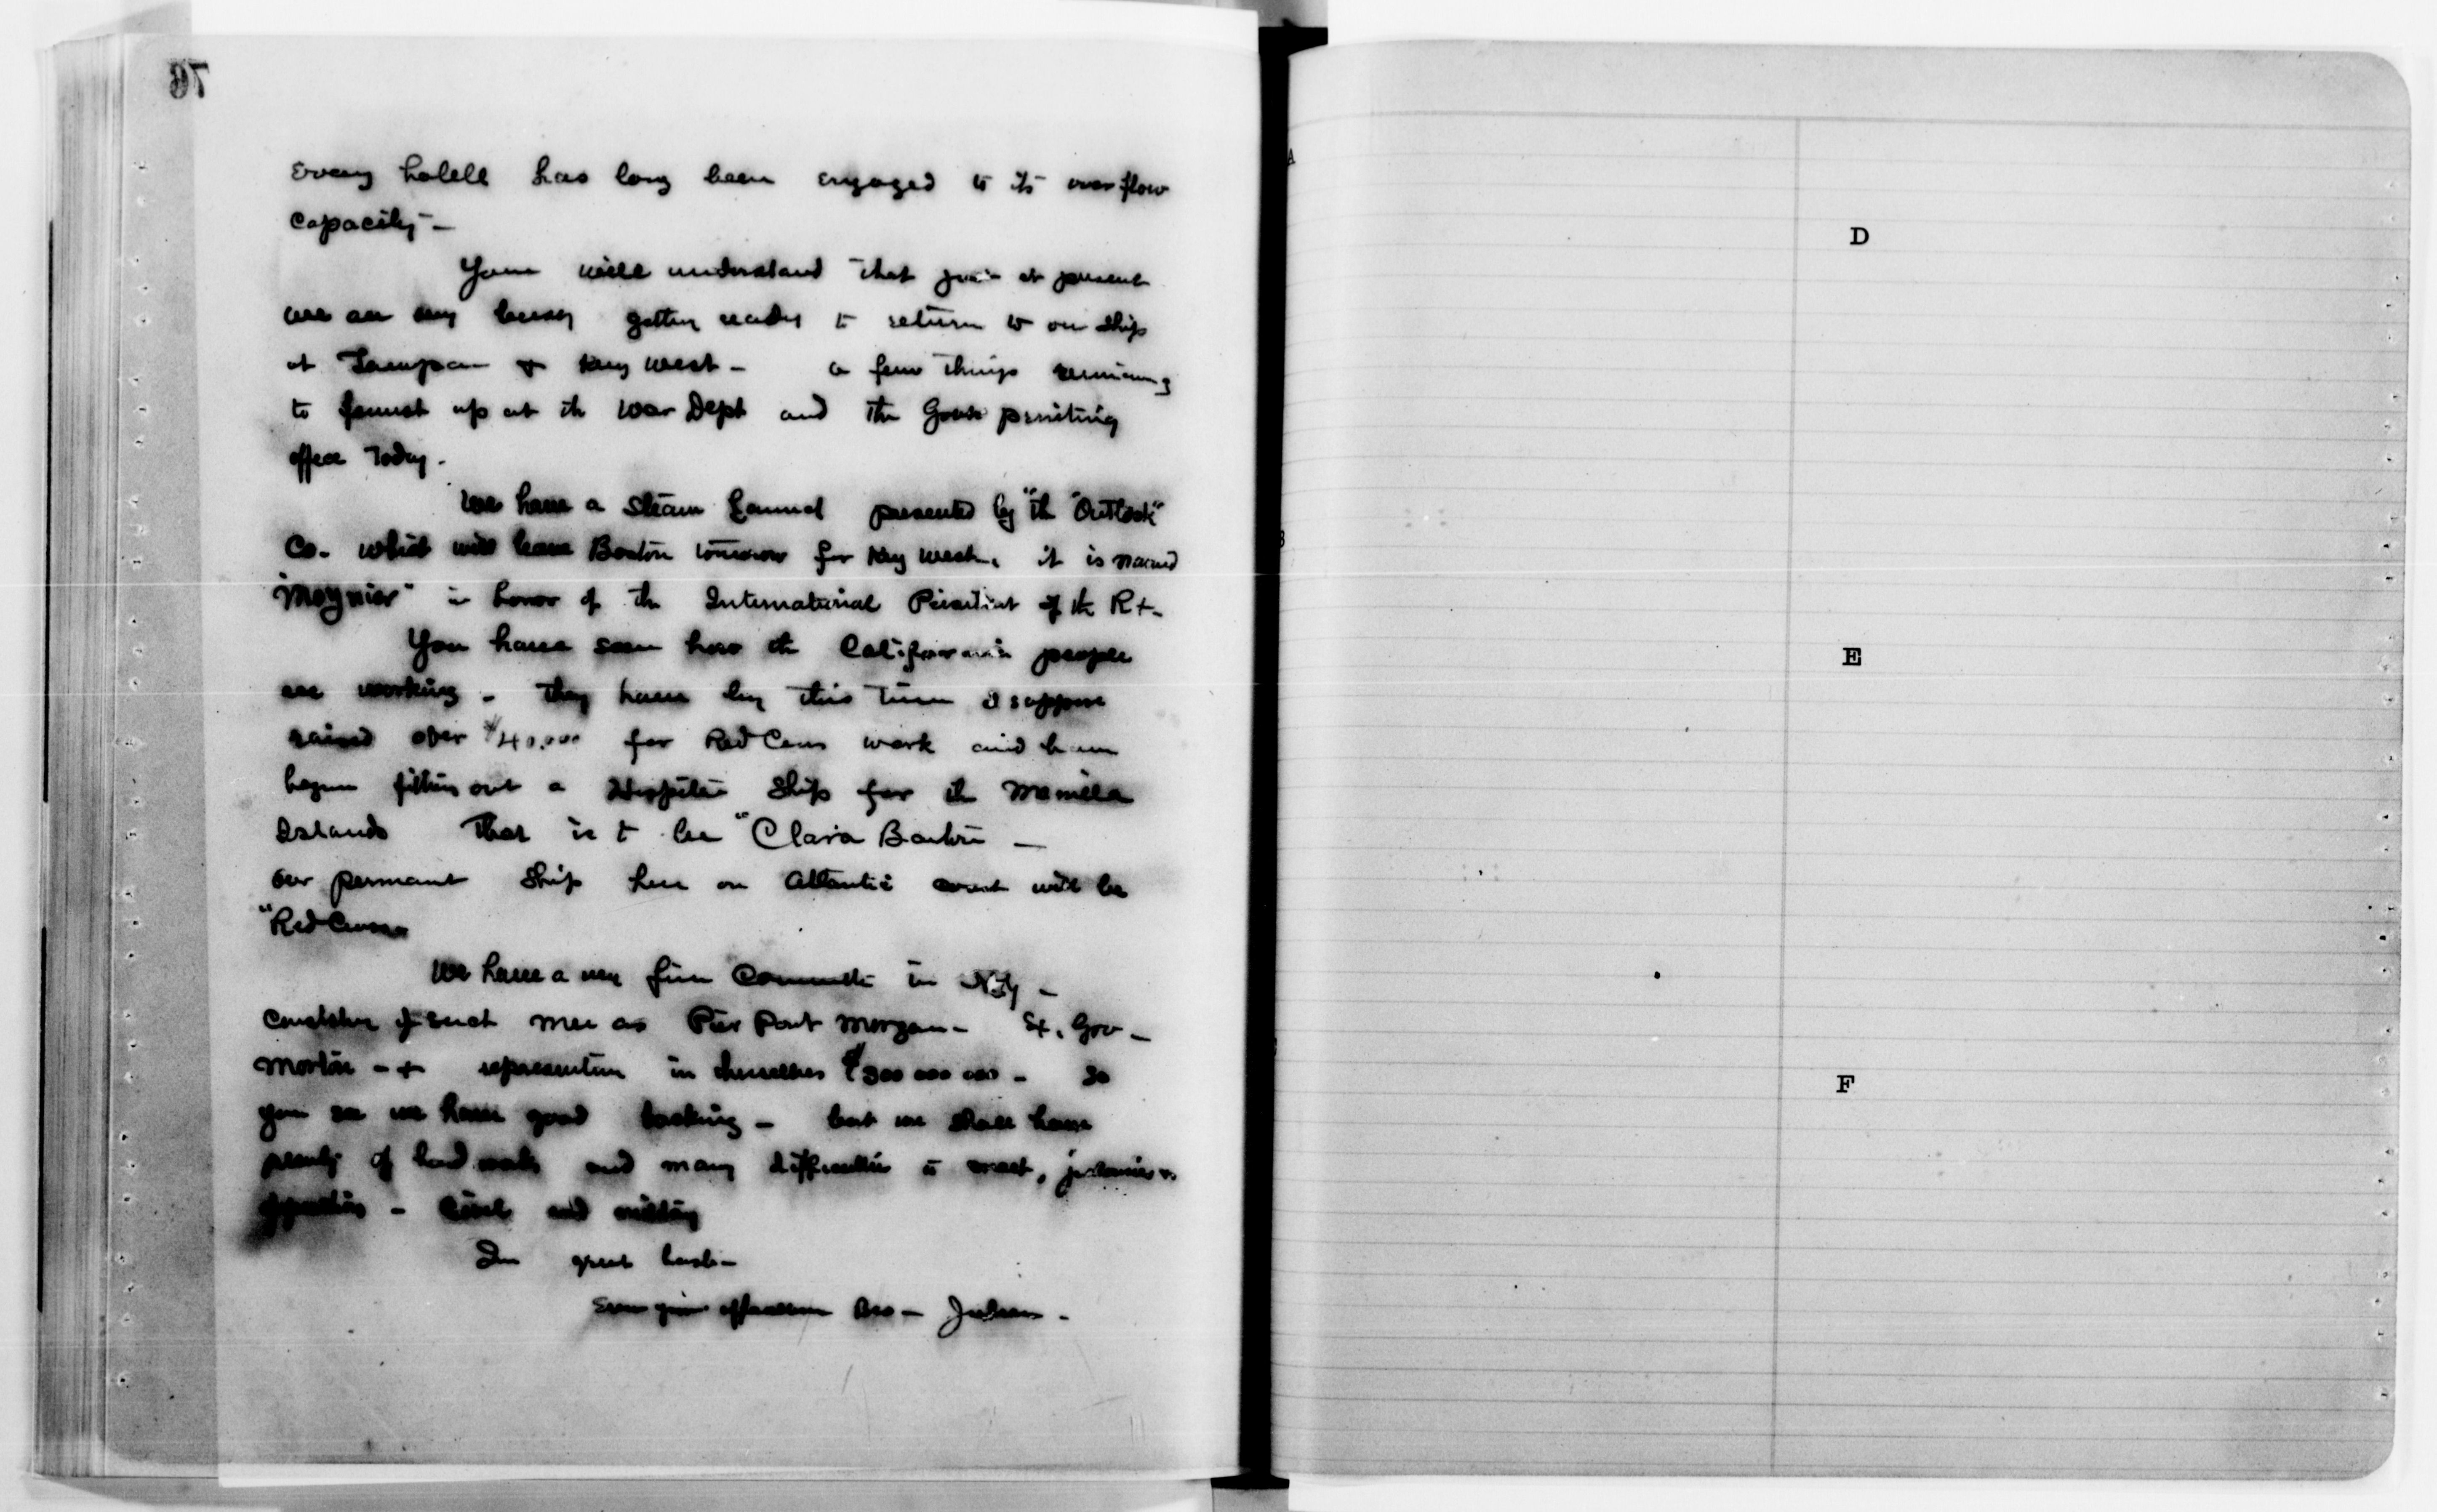 76
Every hotell has long been engaged to its over flow
capacity -
You will understand that just at present
we are very busy getting ready to return to our ship
at Tampa & Key West - a few things remaining
to finish up at the War Dept and the Govt printing
office today.
We have a steam launch presented by "the "Outlook"
Co. which will leave Boston tomorrow for Key West, it is named
"Moynier" in honor of the International President of the R+.
You have seen how the California people
are working - they have by this time I suppose
raised over $40,000 for Red Cross work and have
begun fitting out a Hospital Ship for the Manila
Islands that is to be "Clara Barton -
our permant ship here on Atlantic coast will be
"Red Cross"
We have a very fine Committee in N.Y. -
consisting of such men as Pier Pont Morgan - Ex. Gov -
Morton - & representing in themselves $300 000 000 - So
you see we have good backing - but we shall have
plenty of hard work and many difficulties to meet, jealousies &
opposition - Civil and military
In great haste -
Ever your affection Bro - Julian -
D
E
F